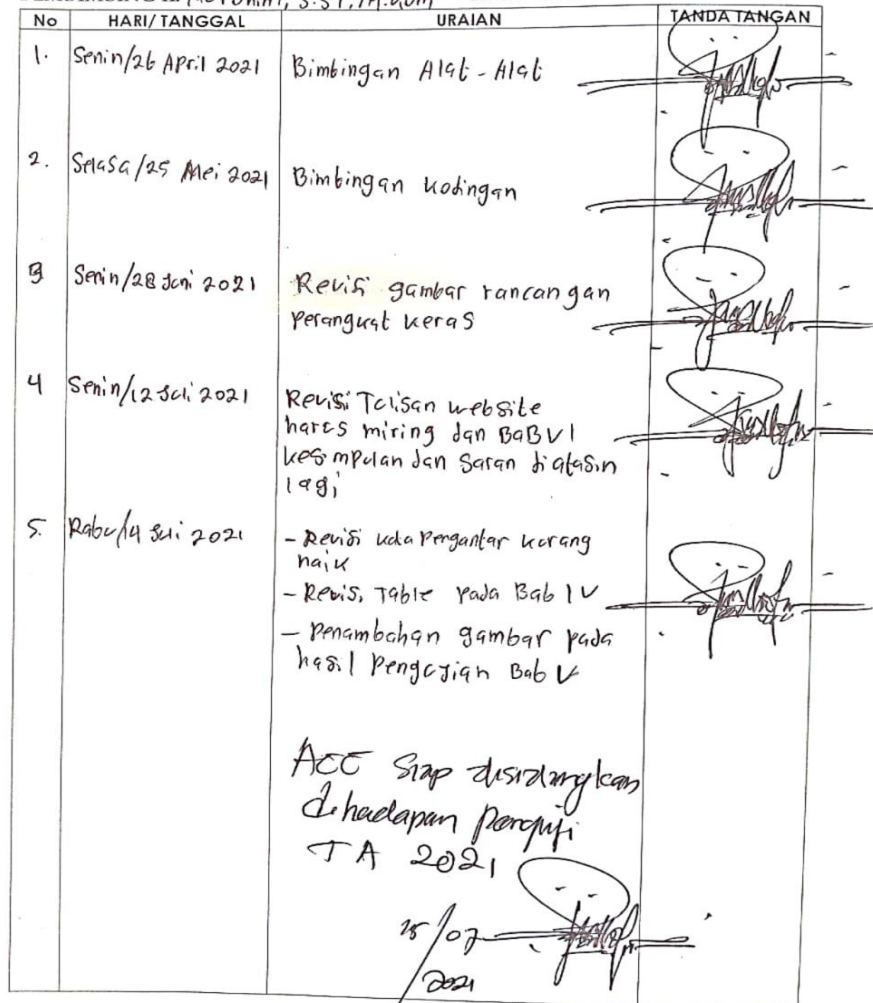 S.ST, M.Kom
No HARI/ TANGGAL URAIAN TANDA TANGAN
1. Senin/26 April 2021 Bimbingan Alat-Alat
2. Selasa/25 Mei 2021 Bimbingan kodingan
3 Senin/28 Juni 2021 Revisi gambar rancangan
perangkat keras
4 Senin/12 Juli 2021 Revisi Tulisan website
harus miring dan BaB VI
kesimpulan dan Saran di atasin
lagi
5. Rabu/14 Juli 2021 - Revisi kata Pengantar kurang
naik
- Revisi Table pada Bab IV
- Penambahan gambar pada
hasil Pengujian Bab V
ACC Siap disidangkan
dihadapan penguji
TA 2021
15/07
2021